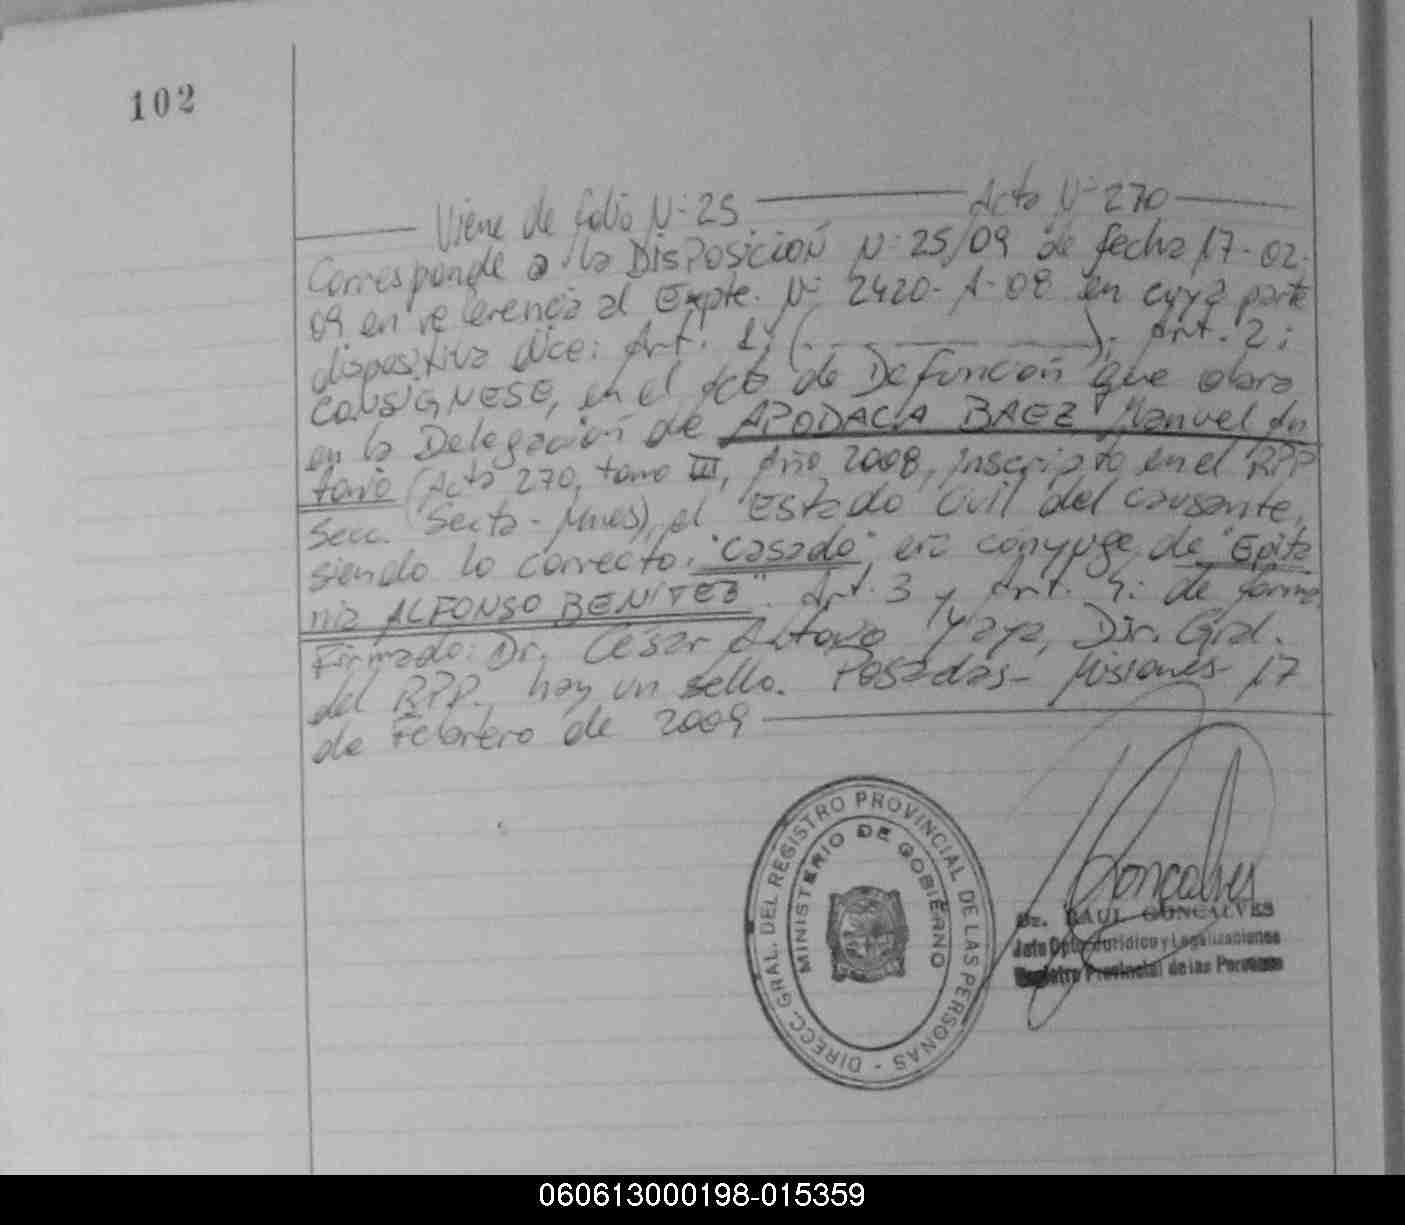 102
Viene de folio N: 25 Acta Nº 270
Corresponde a la DISPOSICIÓN Nº 25/09 de fecha 17-02-
09 en referencia al Expte. Nº 2420-A-08 en cuya parte
dispositiva dice: Art. 1; ( ). Art. 2:
CONSIGNESE, en el Acta de Defunción que obra
en la Delegación de APODACA BAEZ Manuel An
tonio (Acta 270, tomo III, Año 2008, inscripto en el RPP
Secc. Sexta - Mnes), el Estado Civil del causante,
siendo lo correcto: "casado" era cónyuge de "Epifa
nia ALFONSO BENITEZ". Art. 3 y Art. 4: de forma
Firmado: Dr. César Antonio Yaya, Dir. Gral.
del RPP. hay un sello. Posadas - Misiones 17
de Febrero de 2009
DIRECC. GRAL. DEL REGISTRO PROVINCIAL DE LAS PERSONAS -
MINISTERIO DE GOBIERNO
Goncalves
Dr. RAUL GONCALVES
Jefe Dpto. Jurídico y Legalizaciones
Registro Provincial de las Personas
060613000198-015359